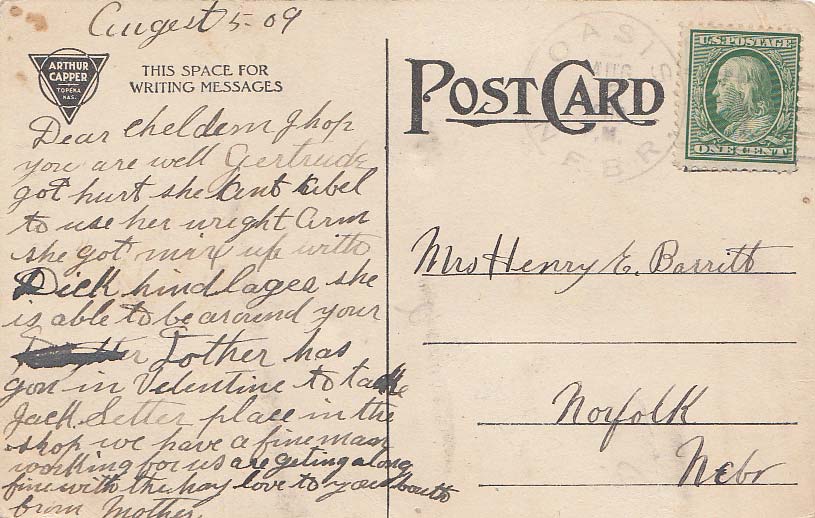 Augest 5-09
ARTHUR
CAPPER
TOPEKA
KAS.
THIS SPACE FOR
WRITING MESSAGES
Dear cheldern I hop
you are well Gertrude
got hurt she ant abel
to use her wright arm
she got mix up with
Dick hind lages she
is able to be around your
Fother has
gon in Valentine to take
Jack Setter place in the
shop we have a fine man
working for us are geting along
fine with the hay love to you bouth
from Mother.
POST CARD
OASIS
AUG
M.
NEBR
U.S. POSTAGE
ONE CENT
Mrs Henry E. Barritt
Norfolk
Nebr